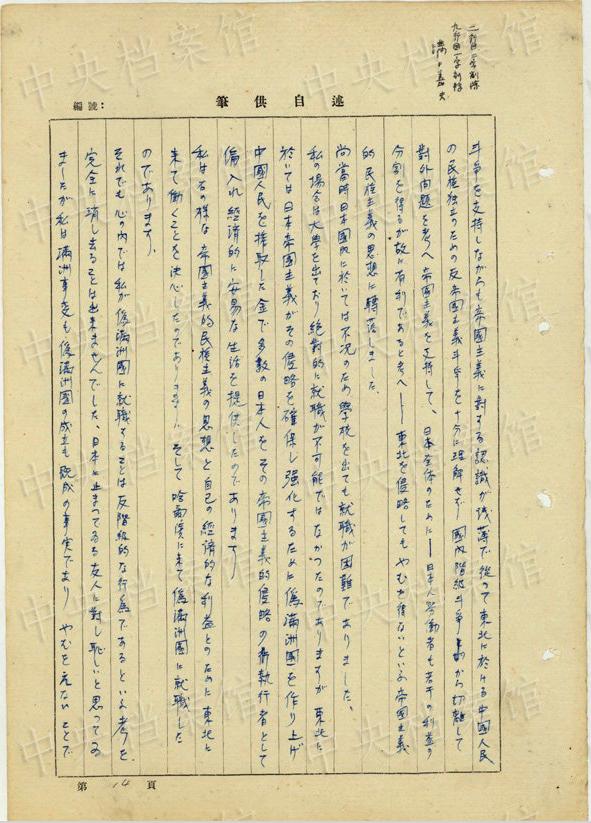 二行目二字削除
九行目一字削除
溝口嘉夫
筆供自述
編號：
斗争を支持しながらも帝國主義に對する認識が浅薄で從つて東北に於ける中國人民
の民族独立のための反帝國主義斗争を十分に理解せず國内階級斗争から切離して
對外問題を考へ帝國主義を支持して、日本全体のために―日本人労働者も若干の利益の
分割を得るが故に有利であると考へ――東北を侵略してもやむを得ないといふ帝國主義
的民族主義の思想に轉落しました。
尚當時日本國内に於いては不況のため學校を出ても就職が困難でありました、
私の場合は大學を出ており絶對的に就職が不可能ではなかつたのでありますが東北に
於いては日本帝國主義がその侵略を確保し强化するために偽滿洲國を作り上げ
中國人民を搾取した金で多数の日本人をその帝國主義的侵略の執行者として
傭入れ經済的に安易な生活を提供したのであります、
私は右の様な帝國主義的民族主義の思想と自己の經済的な利益とのために東北に
来て働くことを決心したのであります、そして哈爾濱に来て偽滿洲國に就職した
のであります、
それでも心の内では私が偽滿洲國に就職することは反階級的な行為であるといふ考を
完全に消し去ることは出来ませんでした、日本に止まつてゐる友人に對し恥しいと思つてゐ
ましたが私は滿洲事変も偽滿洲國の成立も既成の事実でありやむをえないことで
第 14 頁
中央档案馆